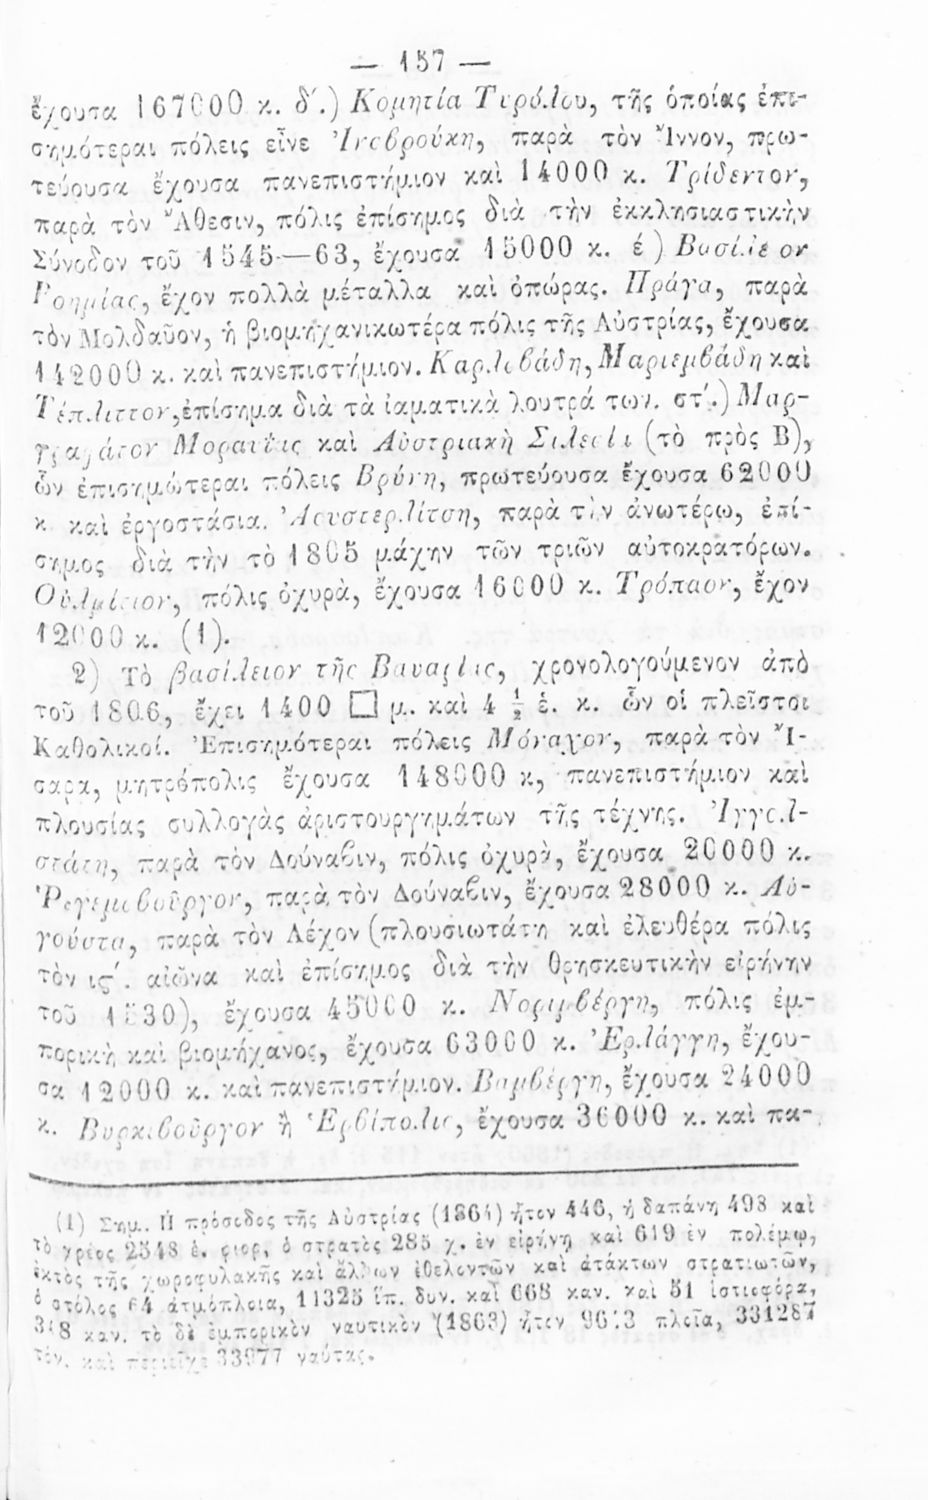 — 157 —
ἔχουσα 167000 κ. δ΄.) Κομητία Τιρόλου, τῆς ὁποίας ἐπι-
σημότεραι πόλεις εἶνε Ἰνσβρούκη, παρὰ τὸν Ἴννον, πρω-
τεύουσα ἔχουσα πανεπιστήμιον καὶ 14000 κ. Τρίδεντον,
παρὰ τὸν Ἄθεσιν, πόλις ἐπίσημος διὰ τὴν ἐκκλησιαστικὴν
Σύνοδον τοῦ 1545—63, ἔχουσα 15000 κ. έ) Βασίλειον
Βοημίας, ἔχον πολλὰ μέταλλα καὶ ὀπώρας. Πράγα, παρὰ
τὸν Μολδαῦον, ἡ βιομηχανικωτέρα πόλις τῆς Αὐστρίας, ἔχουσα
142000 κ. καὶ πανεπιστήμιον. Καρλσβάδη, Μαριεμβάδη καὶ
Τέπλιττον, ἐπίσημα διὰ τὰ ἰαματικὰ λουτρά των. στ΄.) Μαρ-
γραφάτον Μοραυΐας καὶ Αὐστριακὴ Σιλεσία (τὸ πρὸς Β),
ὧν ἐπισημώτεραι πόλεις Βρύνη, πρωτεύουσα ἔχουσα 62000
κ καὶ ἐργοστάσια. Ἀουστερλίτση, παρὰ τὴν ἀνωτέρω, ἐπί-
σημος διὰ τὴν τὸ 1805 μάχην τῶν τριῶν αὐτοκρατόρων.
Οὐλμίτιον, πόλις ὀχυρὰ, ἔχουσα 16000 κ. Τρόπαον, ἔχον
12000 κ. (1).
2) Τὸ βασίλειον τῆς Βαυαρίας, χρονολογούμενον ἀπὸ
τοῦ 1806, ἔχει 1400 □ μ. καὶ 4 ½ ἑ. κ. ὧν οἱ πλεῖστοι
Καθολικοί. Ἐπισημότεραι πόλεις Μόναχον, παρὰ τὸν Ἴ-
σαρα, μητρόπολις ἔχουσα 148000 κ, πανεπιστήμιον καὶ
πλουσίας συλλογὰς ἀριστουργημάτων τῆς τέχνης. Ἰγγολ-
στάτη, παρὰ τὸν Δούναβιν, πόλις ὀχυρὰ, ἔχουσα 20000 κ.
Ῥεγεμσβοῦργον, παρὰ τὸν Δούναβιν, ἔχουσα 28000 κ. Αὐ-
γούστα, παρὰ τὸν Λέχον (πλουσιωτάτη καὶ ἐλευθέρα πόλις
τὸν ις΄. αἰῶνα καὶ ἐπίσημος διὰ τὴν θρησκευτικὴν εἰρήνην
τοῦ 1530), ἔχουσα 45000 κ. Νοριμβέργη, πόλις ἐμ-
πορικὴ καὶ βιομήχανος, ἔχουσα 63000 κ. Ἐρλάγγη, ἔχου-
σα 12000 κ. καὶ πανεπιστήμιον. Βαμβέργη, ἔχουσα 24000
κ. Βυρκιβοῦργον ἢ Ἑρβίπολις, ἔχουσα 36000 κ. καὶ πα-
(1) Σημ. Η πρόσοδος τῆς Αὐστρίας (1864) ἦτον 446, ἡ δαπάνη 498 καὶ
τὸ χρέος 2548 ἑ. φιορ, ὁ στρατὸς 285 χ. ἐν εἰρήνῃ καὶ 619 ἐν πολέμῳ,
ἐκτὸς τῆς χωροφυλακῆς καὶ ἄλλων ἐθελοντῶν καὶ ἀτάκτων στρατιωτῶν,
ὁ στόλος 64 ἀτμόπλοια, 11325 ἵπ. δυν. καὶ 668 καν. καὶ 51 ἱστιοφόρα,
348 καν. τὸ δὲ ἐμπορικὸν ναυτικὸν (1863) ἦτον 9643 πλοῖα, 331287
τόν. καὶ περιεῖχε 33977 ναύτας.